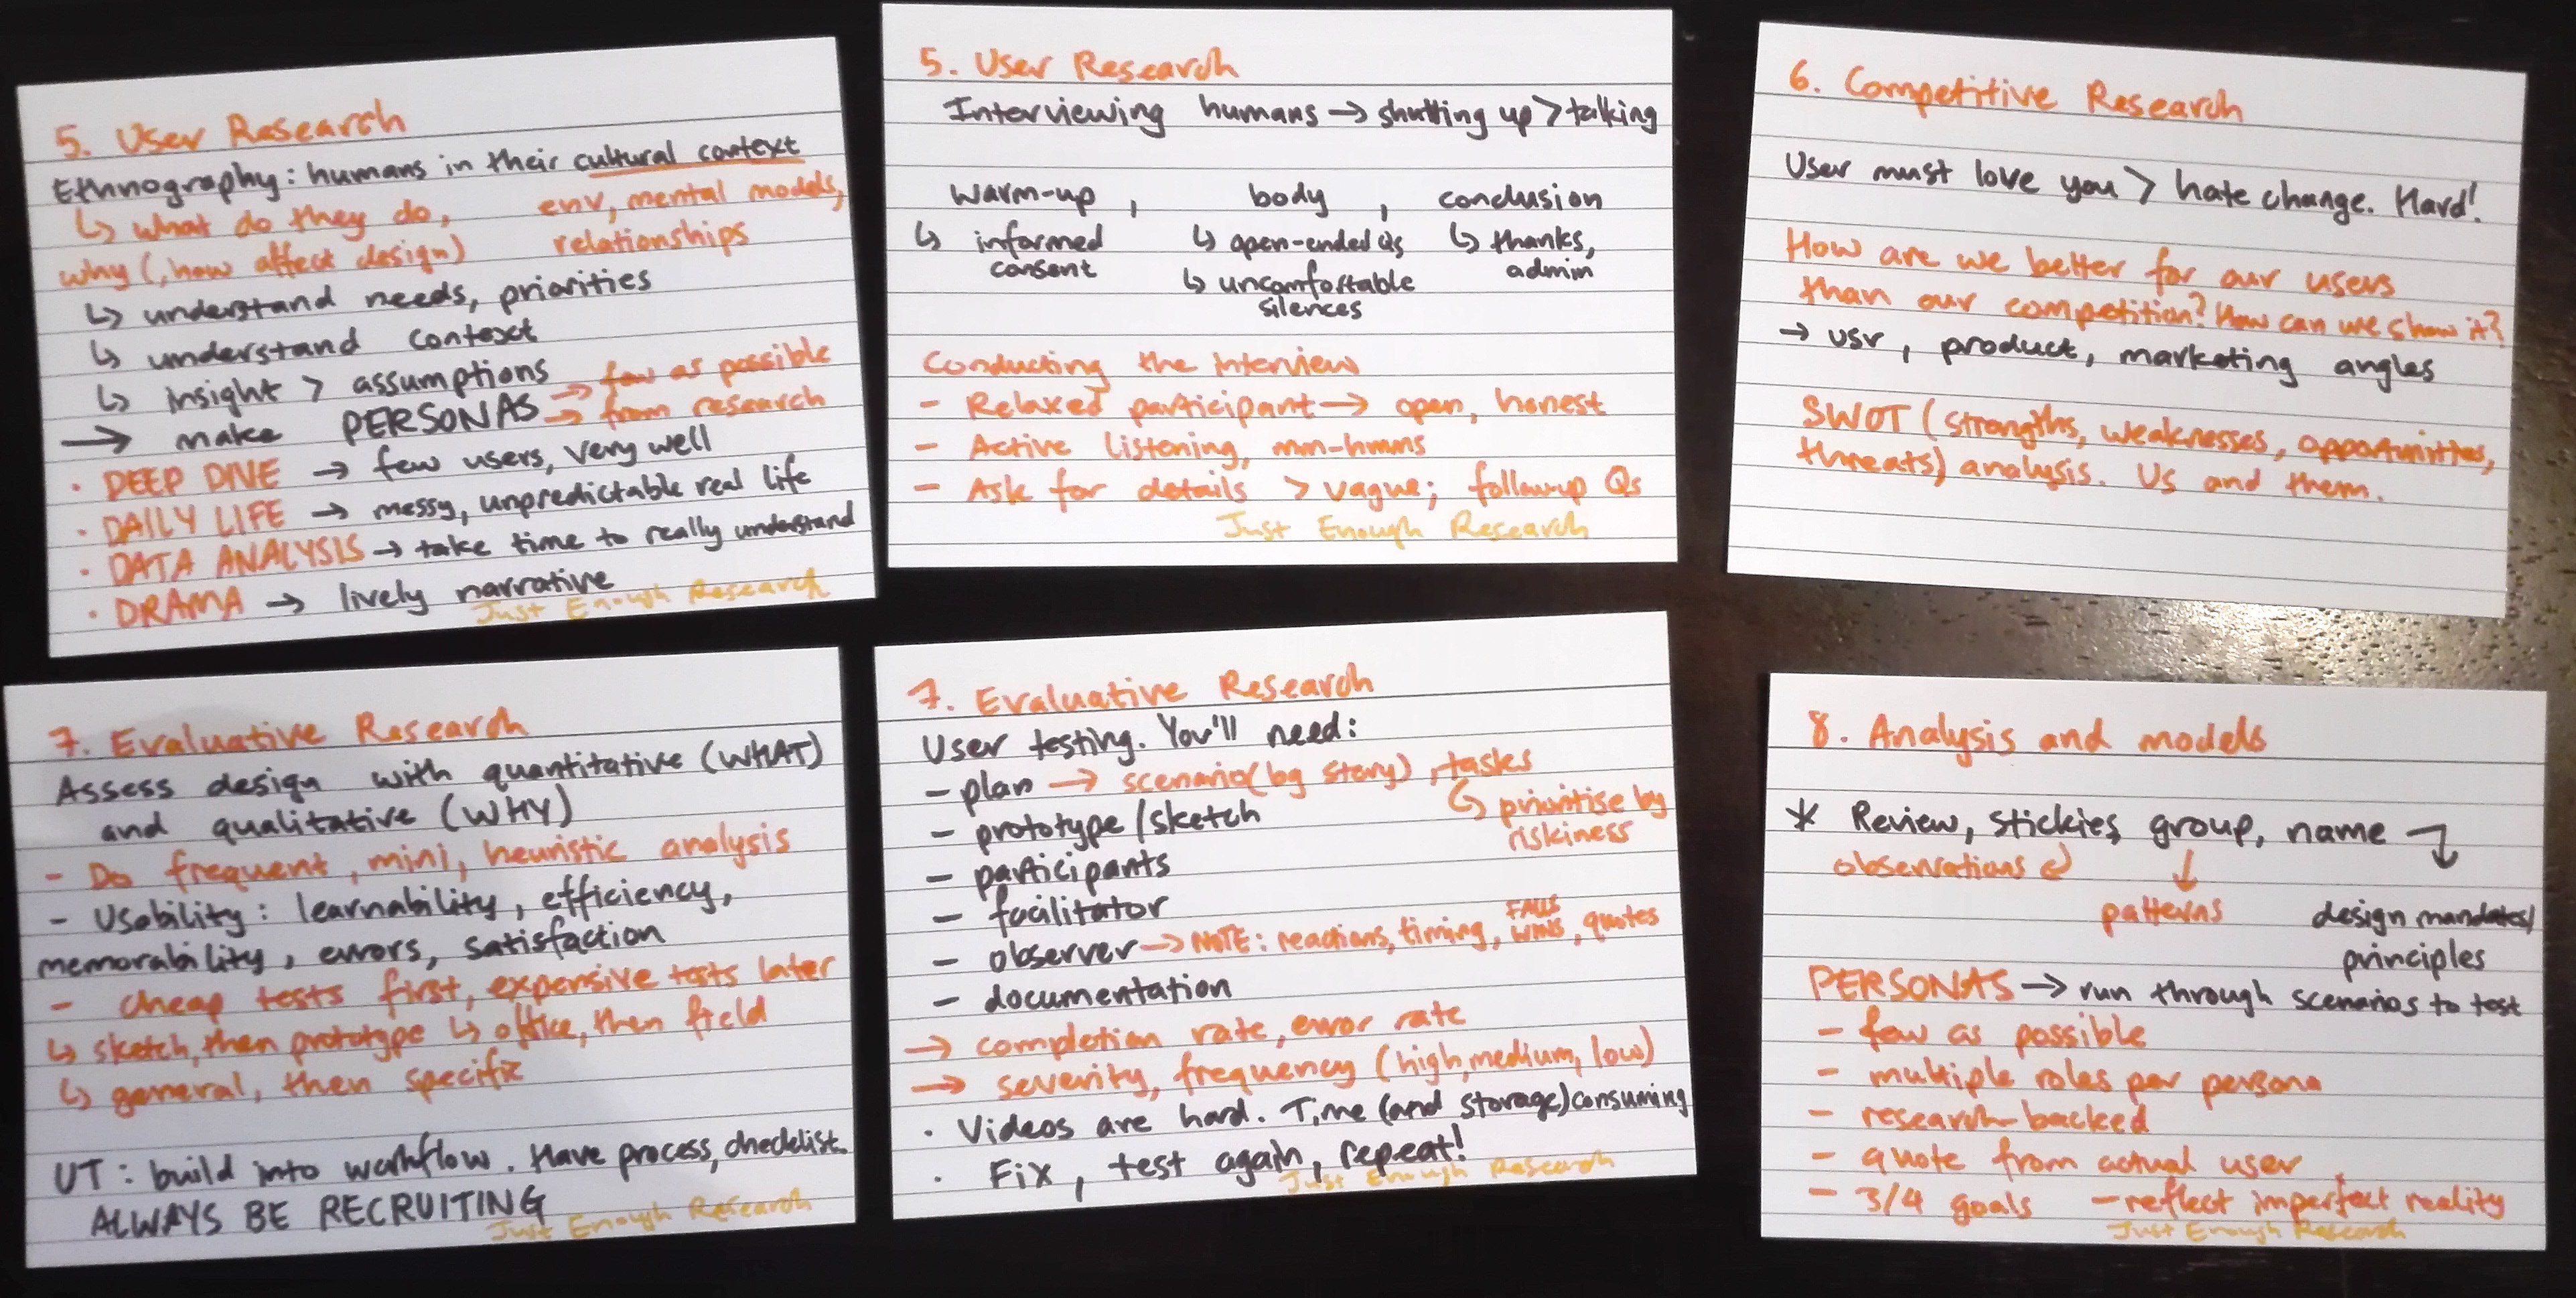 5. User Research
Ethnography: humans in their cultural context
↳ what do they do, env, mental models,
why (, how affect design) relationships
↳ understand needs, priorities
↳ understand context
↳ insight > assumptions
→ make PERSONAS → few as possible
→ from research
• DEEP DIVE → few users, very well
• DAILY LIFE → messy, unpredictable real life
• DATA ANALYSIS → take time to really understand
• DRAMA → lively narrative
Just Enough Research
5. User Research
Interviewing humans → shutting up > talking
Warm-up, body, conclusion
↳ informed consent
↳ open-ended Qs
↳ uncomfortable silences
↳ thanks, admin
Conducting the Interview
- Relaxed participant → open, honest
- Active listening, mm-hmms
- Ask for details > vague; followup Qs
Just Enough Research
6. Competitive Research
User must love you > hate change. Hard!
How are we better for our users
than our competition? How can we show it?
→ usr, product, marketing angles
SWOT (strengths, weaknesses, opportunities,
threats) analysis. Us and them.
7. Evaluative Research
Assess design with quantitative (WHAT)
and qualitative (WHY)
- Do frequent, mini, heuristic analysis
- Usability: learnability, efficiency,
memorability, errors, satisfaction
- cheap tests first, expensive tests later
↳ sketch, then prototype ↳ office, then field
↳ general, then specific
UT: build into workflow. Have process, checklist.
ALWAYS BE RECRUITING
Just Enough Research
7. Evaluative Research
User testing. You'll need:
- plan → scenario (bg story), tasks
↳ prioritise by riskiness
- prototype/sketch
- participants
- facilitator
- observer → NOTE: reactions, timing, FAILS WINS, quotes
- documentation
→ completion rate, error rate
→ severity, frequency (high, medium, low)
• Videos are hard. Time (and storage) consuming
• Fix, test again, repeat!
Just Enough Research
8. Analysis and models
* Review, stickies, group, name
observations
patterns
design mandates/
principles
PERSONAS → run through scenarios to test
- few as possible
- multiple roles per persona
- research-backed
- quote from actual user
- 3/4 goals - reflect imperfect reality
Just Enough Research